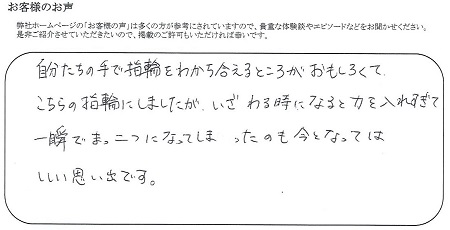 お客様のお声
弊社ホームページの「お客様の声」は多くの方が参考にされていますので、貴重な体験談やエピソードなどをお聞かせください。
是非ご紹介させていただきたいので、掲載のご許可もいただければ幸いです。
自分たちの手で指輪をわかち合えるところがおもしろくて、
こちらの指輪にしましたが、いざ わる時になると力を入れすぎて
一瞬でまっ二つになってしまったのも今となっては
いい思い出です。